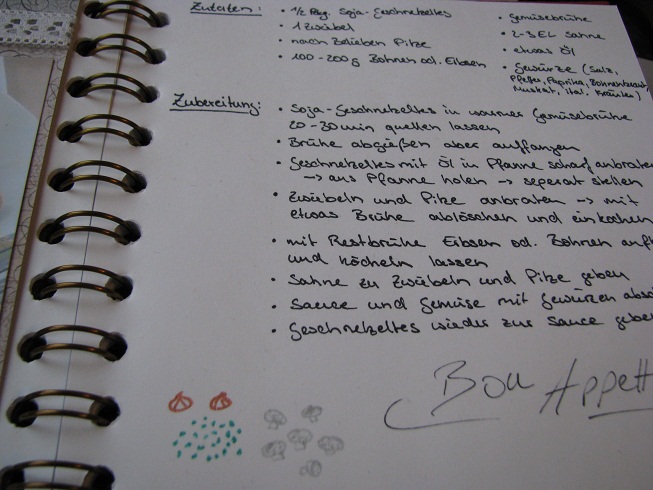 Zutaten: • 1/2 Pkg. Soja-Geschnetzeltes • Gemüsebrühe
• 1 Zwiebel • 2-3 EL Sahne
• nach Belieben Pilze • etwas Öl
• 100-200g Bohnen od. Erbsen • Gewürze (Salz,
Pfeffer, Paprika, Bohnenkraut,
Muskat, ital. Kräuter)
Zubereitung: • Soja-Geschnetzeltes in warmer Gemüsebrühe
20-30min quellen lassen
• Brühe abgießen aber auffangen
• Geschnetzeltes mit Öl in Pfanne scharf anbraten
→ aus Pfanne holen → seperat stellen
• Zwiebeln und Pilze anbraten → mit
etwas Brühe ablöschen und einkochen
• mit Restbrühe Erbsen od. Bohnen
und köcheln lassen
• Sahne zu Zwiebeln und Pilze geben
• Sauce und Gemüse mit Gewürzen
• Geschnetzeltes wieder zur Sauce
Bon Appetit